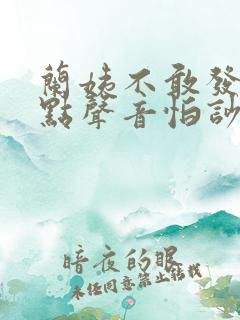 蘭姨不敢發
點聲音怕訬
暗夜的眼
未經同意禁止轉載